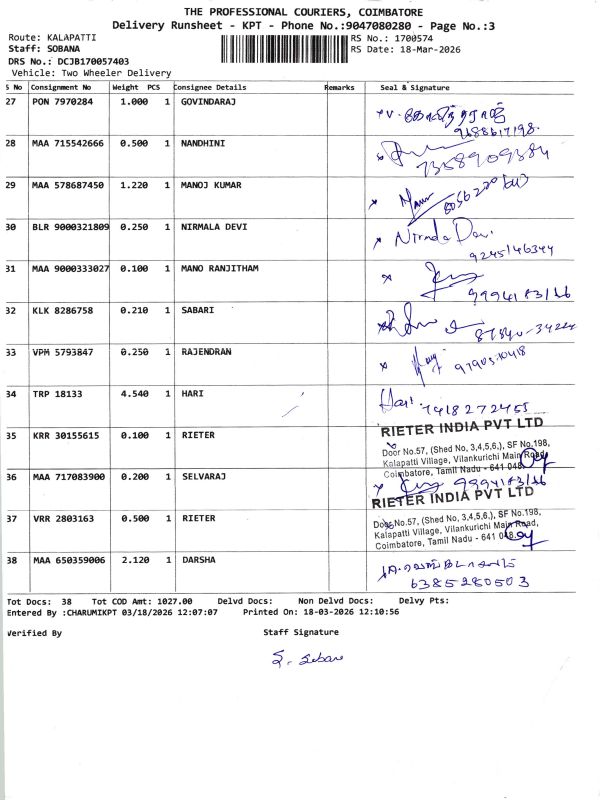 THE PROFESSIONAL COURIERS, COIMBATORE
Delivery Runsheet - KPT - Phone No.:9047080280 - Page No.:3
Route: KALAPATTI
RS No.: 1700574
Staff: SOBANA
RS Date: 18-Mar-2026
DRS No.: DCJB170057403
Vehicle: Two Wheeler Delivery
S No Consignment No Weight PCS Consignee Details Remarks Seal & Signature
27 PON 7970284 1.000 1 GOVINDARAJ
9688617198.
28 MAA 715542666 0.500 1 NANDHINI
7358909384
29 MAA 578687450 1.220 1 MANOJ KUMAR
30 BLR 9000321809 0.250 1 NIRMALA DEVI Nirmala Devi
9245146344
31 MAA 9000333027 0.100 1 MANO RANJITHAM
32 KLK 8286758 0.210 1 SABARI
33 VPM 5793847 0.250 1 RAJENDRAN
34 TRP 18133 4.540 1 HARI Hari
7418272455
35 KRR 30155615 0.100 1 RIETER RIETER INDIA PVT LTD
Door No.57, (Shed No, 3,4,5,6,), SF No.198,
Kalapatti Village, Vilankurichi Main Road,
Coimbatore, Tamil Nadu - 641 048.
36 MAA 717083900 0.200 1 SELVARAJ
37 VRR 2803163 0.500 1 RIETER RIETER INDIA PVT LTD
Door No.57, (Shed No, 3,4,5,6,), SF No.198,
Kalapatti Village, Vilankurichi Main Road,
Coimbatore, Tamil Nadu - 641 048.
38 MAA 650359006 2.120 1 DARSHA
6385280503
Tot Docs: 38 Tot COD Amt: 1027.00 Delvd Docs: Non Delvd Docs: Delvy Pts:
Entered By :CHARUMIKPT 03/18/2026 12:07:07 Printed On: 18-03-2026 12:10:56
Verified By Staff Signature